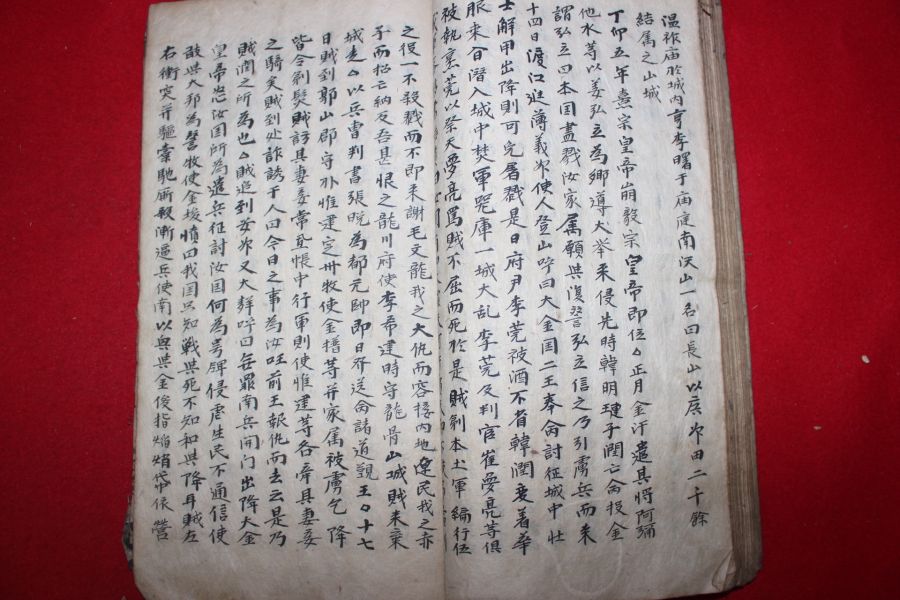 温祚庙於城内亨李曙于庙庭南汉山一名曰長山以廣州田二千餘
結属之山城
丁卯五年熹宗皇帝崩毅宗皇帝即位△正月金汗遣其將阿彌
他水等以姜弘立為鄉導大挙来侵先時韓明璉子潤亡命投金
謂弘立曰本国盡戮汝家属願共復讐弘立信之乃引虜兵而来
十四日渡江进薄義州使人登山呼曰大金国二王奉命討征城中壮
士解甲出降則可完屠戮是日府尹李莞被酒不省韓潤变着華
服来自潜入城中焚軍噐庫一城大乱李莞及判官崔夢亮等俱
被執烹莞以祭天夢亮罵賊不屈而死於是賊剃本土軍編行伍
之役一不殺戮而不即来謝毛文龍我之大仇而容接内地遼民我之赤
子而招亡納反吾甚恨之龍川府使李希建時守龍骨山城賊来棄
城走△以兵曹判書張晚為都元帥即日齐送命諸道覲王△十七
日賊到郭山郡守朴惟建定州牧使金搢等并家属被虜乞降
皆令剃髮賊訝其妻妾常置帳中行軍則使惟建等各牽其妻妾
之騎矣賊到处詐誘于人曰今日之事為汝旺前王報仇而去云是乃
賊潤之所為也△賊追到安州又大群呼曰無罪南兵開门出降大金
皇帝忿汝国所為遣兵征討汝国何為号鋒侵虐生民不通信使
敢與大邦為讐牧使金浚憤曰我国只知戰與死不知和與降耳賊左
右衝突并驅橐馳所殺漸逼兵使南以興與金俊指焰焇帒依營